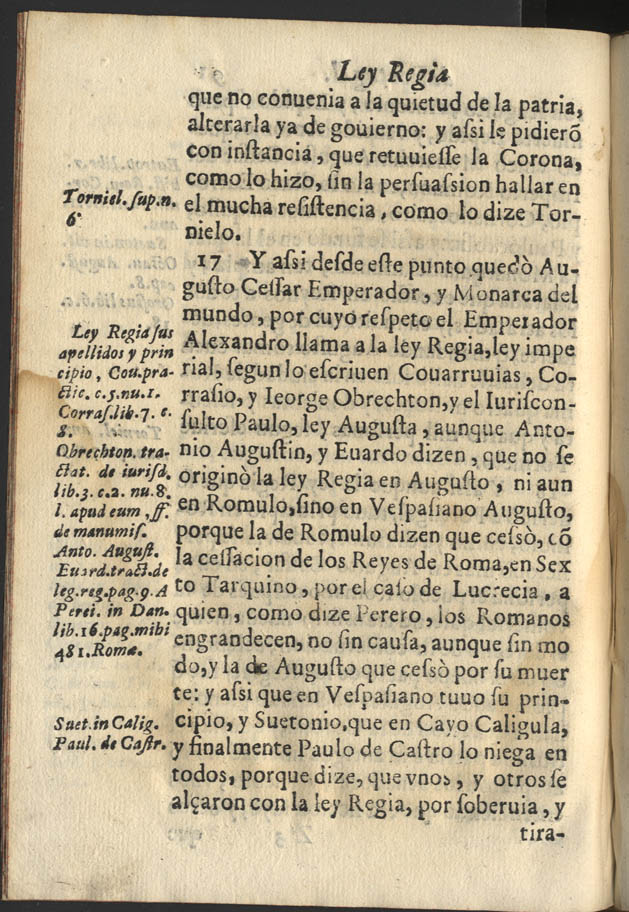 Ley Regia
que no conuenia a la quietud de la patria,
alterarla ya de gouierno: y aſsi le pidierõ
con inſtancia, que retuuieſſe la Corona,
como lo hizo, ſin la perſuaſsion hallar en
el mucha reſiſtencia, como lo dize Tor-
nielo.
17 Y aſsi deſde eſte punto quedò Au-
guſto Ceſſar Emperador, y Monarca del
mundo, por cuyo reſpeto el Emperador
Alexandro llama a la ley Regia, ley impe
rial, ſegun lo eſcriuen Couarruuias, Co-
rraſio, y Ieorge Obrechton, y el Iuriſcon-
ſulto Paulo, ley Auguſta, aunque Anto-
nio Auguſtin, y Euardo dizen, que no ſe
originò la ley Regia en Auguſto, ni aun
en Romulo, ſino en Veſpaſiano Auguſto,
porque la de Romulo dizen que ceſsò, cõ
la ceſſacion de los Reyes de Roma, en Sex
to Tarquino, por el caſo de Lucrecia, a
quien, como dize Perero, los Romanos
engrandecen, no ſin cauſa, aunque ſin mo
do, y la de Auguſto que ceſsò por ſu muer
te: y aſsi que en Veſpaſiano tuuo ſu prin-
cipio, y Suetonio, que en Cayo Caligula,
y finalmente Paulo de Caſtro lo niega en
todos, porque dize, que vnos, y otros ſe
alçaron con la ley Regia, por ſoberuia, y
tira-
Torniel. ſup. n.
6
Ley Regia ſus
apellidos y prin
cipio, Cou. pra-
ctic. c. 5. nu. 1.
Corraſ. lib. 7. c.
8.
Obrechton. tra-
ctat. de iuriſd.
lib. 3. c. 2. nu. 8.
l. apud eum, ff.
de manumiſ.
Anto. Auguſt.
Euard. tract. de
leg. reg. pag. 9. A
Perei. in Dan.
lib. 16. pag. mihi
481. Romæ.
Suet. in Calig.
Paul. de Caſtr.